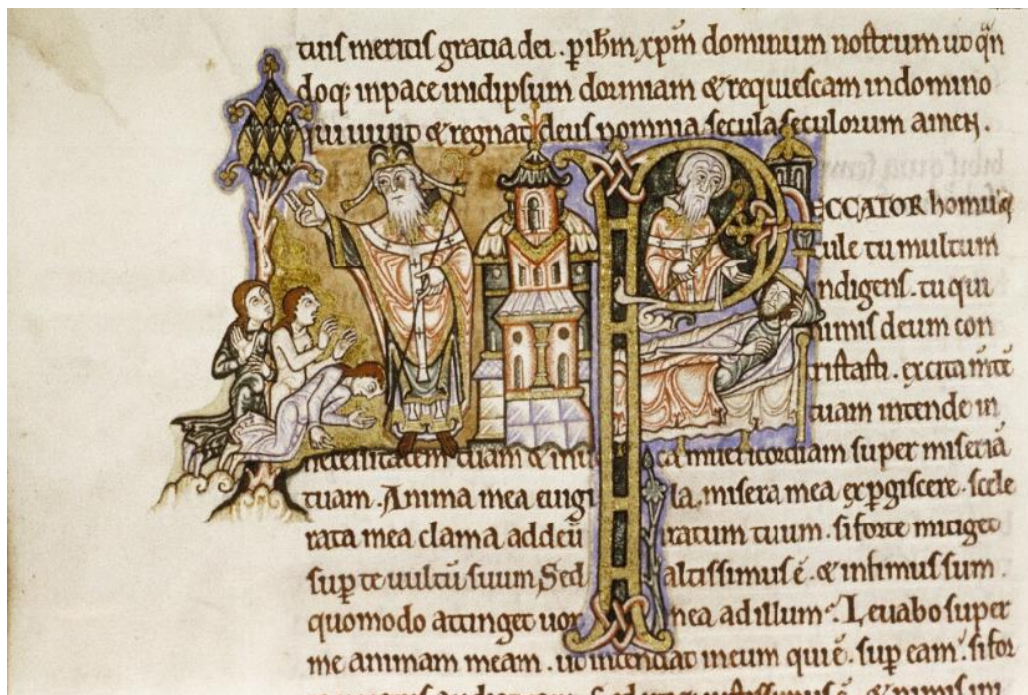 tuis meritis gratia dei. p ihm xpm dominum nostrum ut qn
doq; in pace in idipsum dormiam & requiescam in domino
qui uiuit & regnat deus p omnia secula seculorum amen.
PECCATOR homuncule
cule tu multum
indigens. tu qui
nimis deum con
tristasti. excita mtē
tuam intende in
tuam. Anima mea euigi la, misera mea expgiscere. scele
rata mea clama ad deū iratum tuum. si forte mitiget
sup te uultū suum Sed altissimus ē. & infimus sum.
quomodo attinget uox mea ad illum? Leuabo super
me animam meam. ut intendat in eum qui ē. sup eam. si for